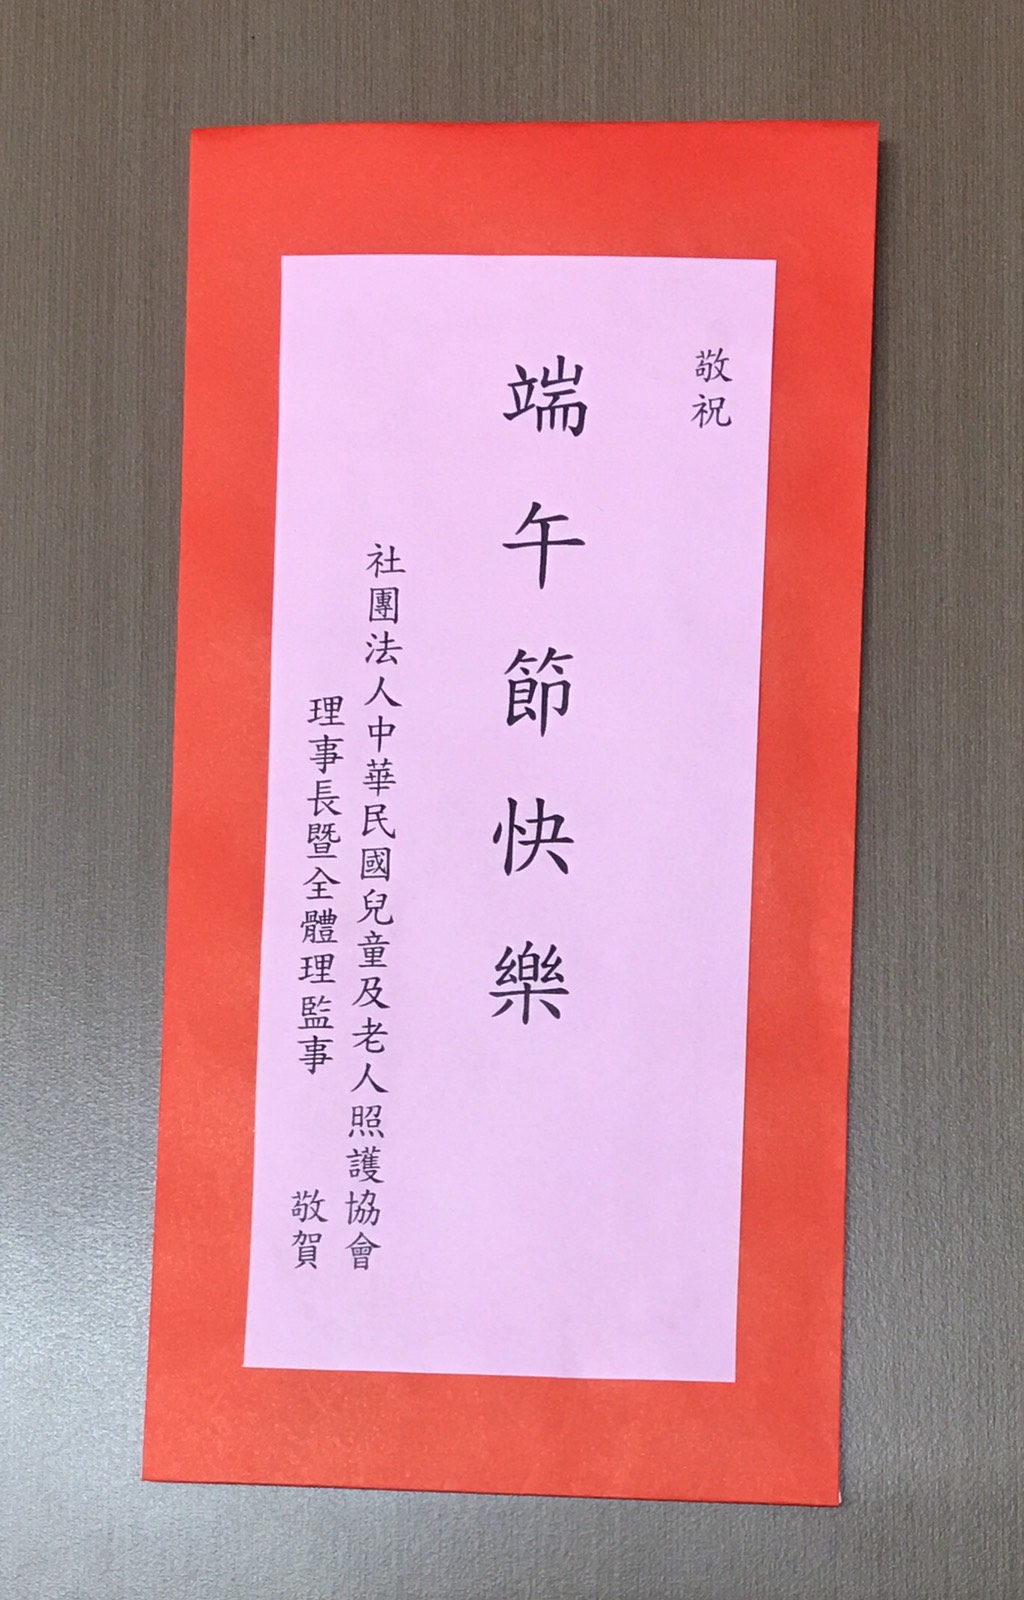 敬祝
端午節快樂
社團法人中華民國兒童及老人照護協會
理事長暨全體理監事 敬賀